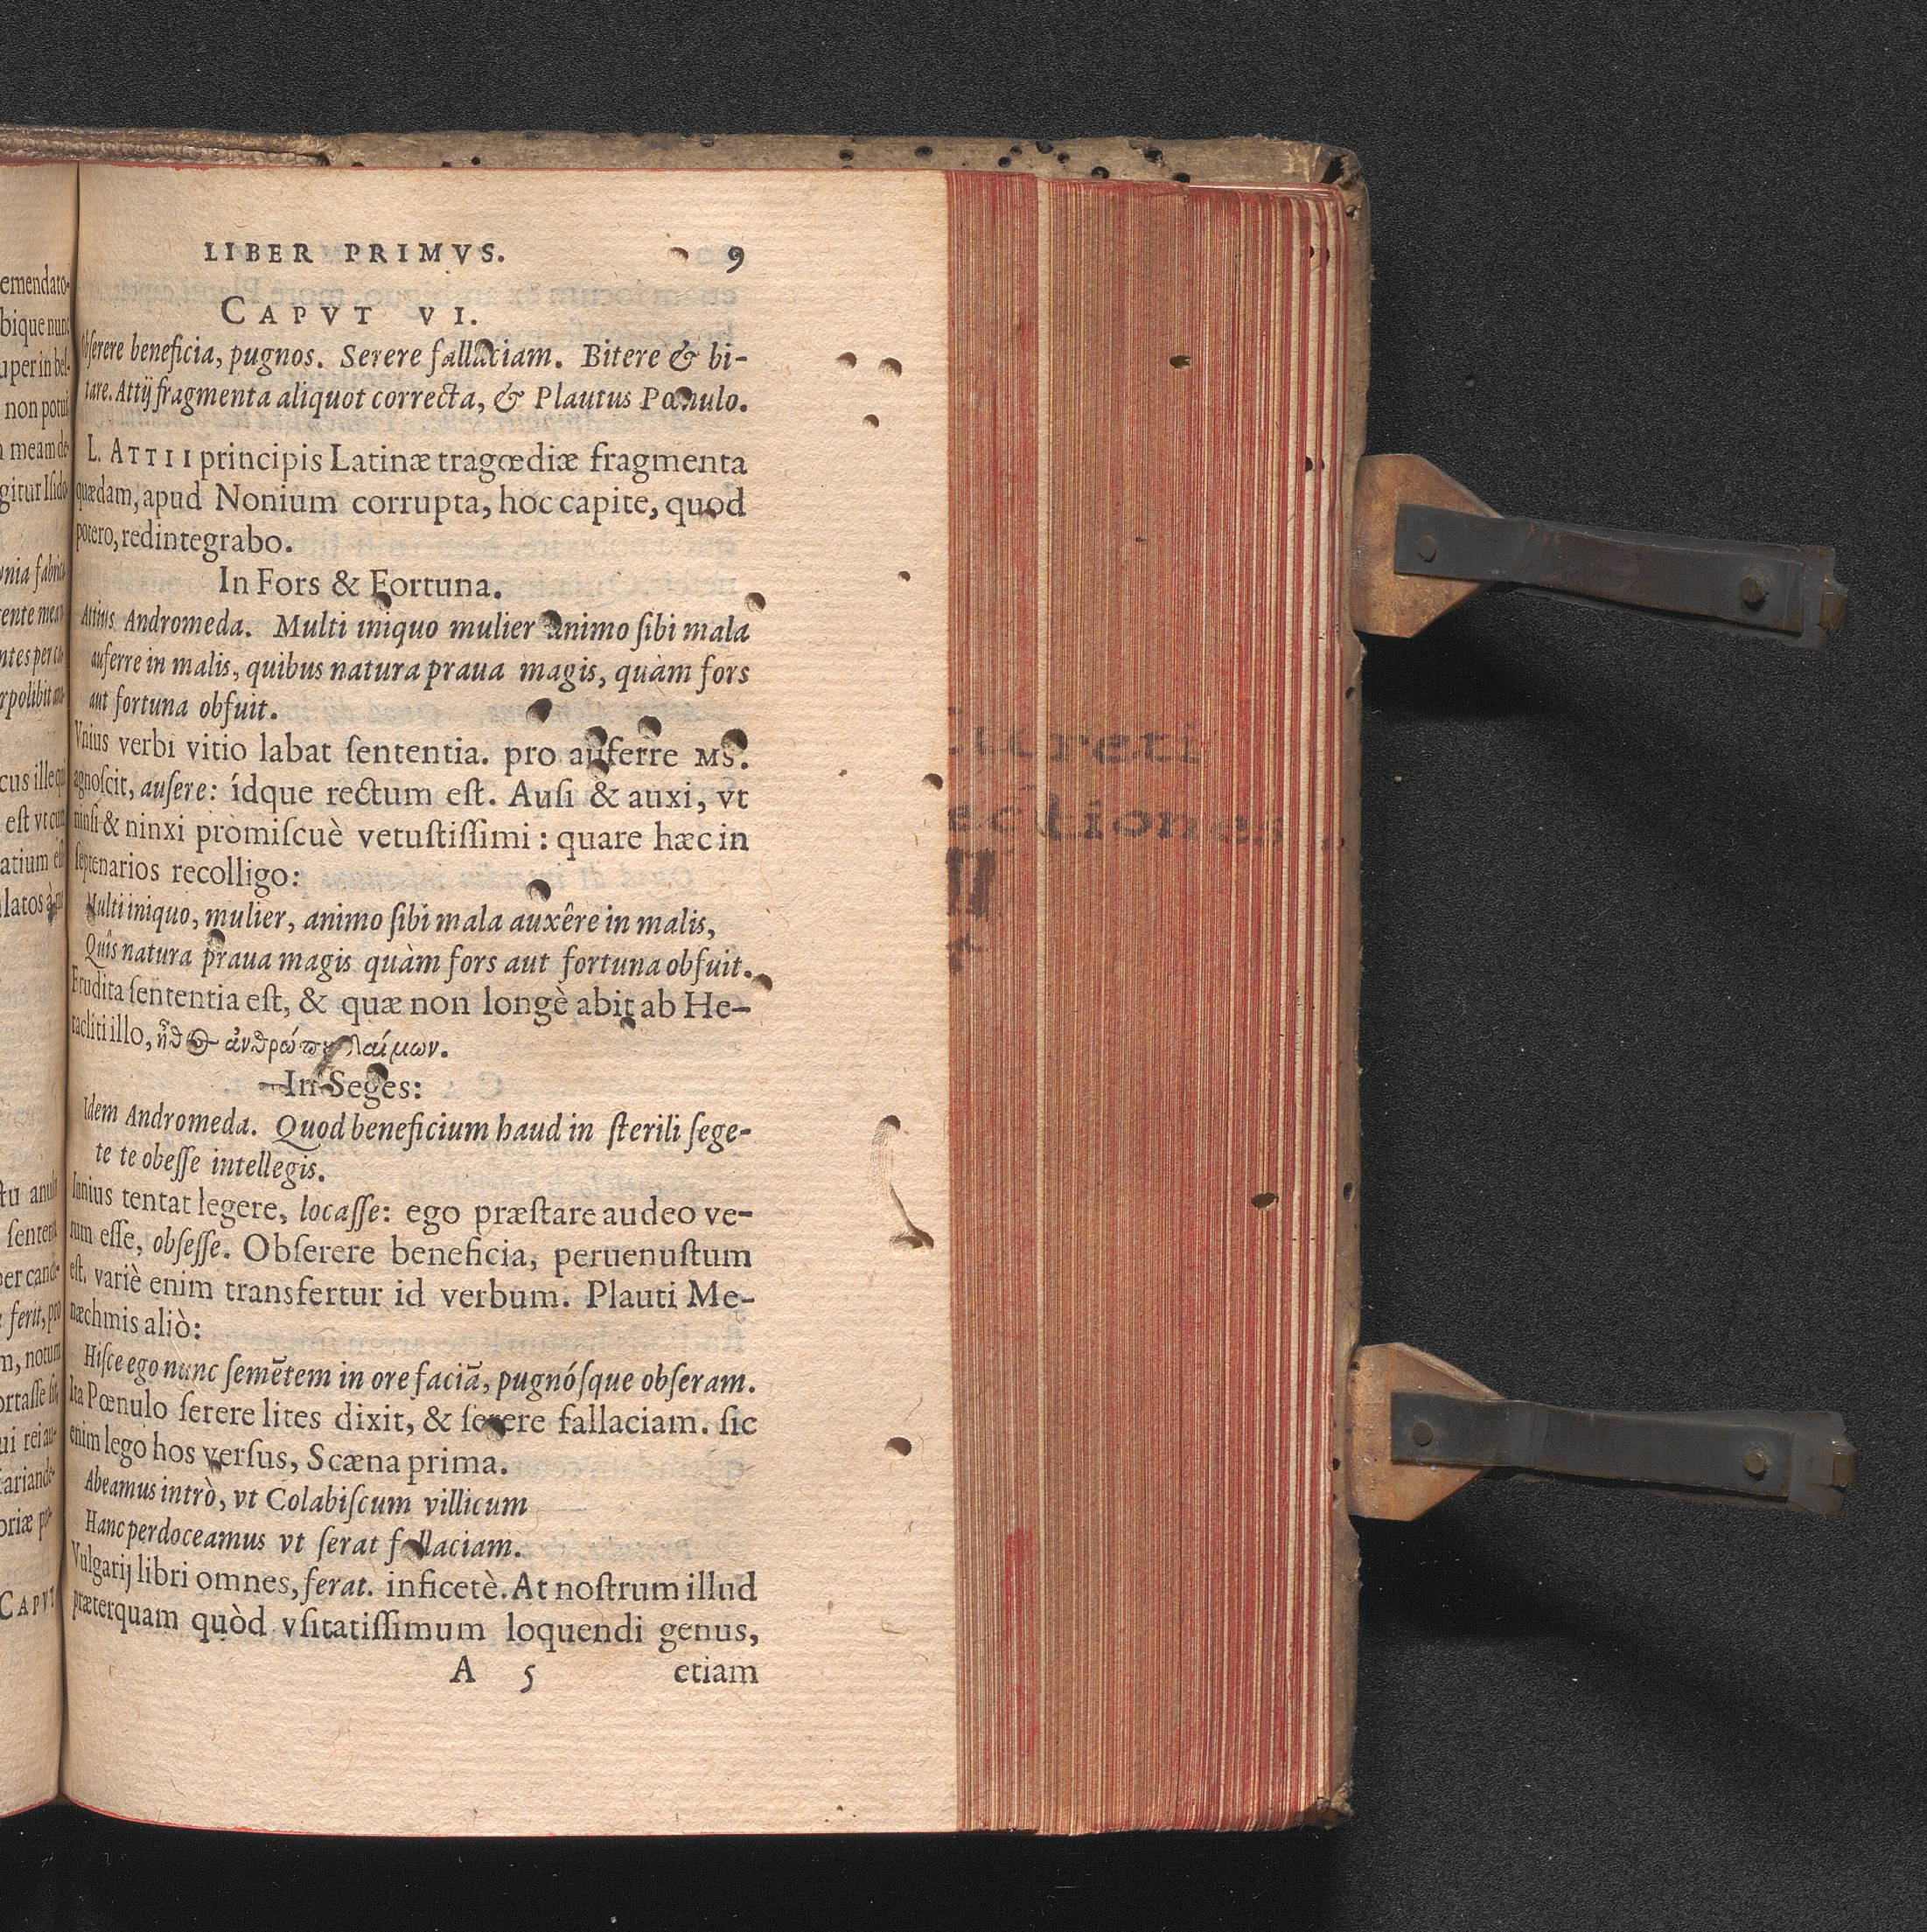 emendato-
bique nunc
uper in bel-
non potui
meam de-
gitur Isido-
LIBER PRIMVS. 9
CAPVT VI.
Obserere beneficia, pugnos. Serere fallaciam. Bitere & bi-
tare. Attij fragmenta aliquot correcta, & Plautus Pœnulo.
L. ATTII principis Latinæ tragœdiæ fragmenta
quædam, apud Nonium corrupta, hoc capite, quod
potero, redintegrabo.
In Fors & Fortuna.
Attius Andromeda. Multi iniquo mulier animo ſibi mala
auferre in malis, quibus natura praua magis, quàm fors
aut fortuna obfuit.
Vnius verbi vitio labat ſententia. pro auferre MS.
agnoſcit, auſere: ídque rectum eſt. Auſi & auxi, vt
ninſi & ninxi promiſcuè vetuſtiſſimi: quare hæc in
ſeptenarios recolligo:
Multi iniquo, mulier, animo ſibi mala auxêre in malis,
Quîs natura praua magis quàm fors aut fortuna obfuit.
Erudita ſententia eſt, & quæ non longè abit ab He-
racliti illo, ἦθος ἀνθρώπου δαίμων.
In Seges:
Idem Andromeda. Quod beneficium haud in ſterili ſege-
te te obeſſe intellegis.
Iunius tentat legere, locaſſe: ego præſtare audeo ve-
rum eſſe, obſeſſe. Obſerere beneficia, peruenuſtum
eſt. variè enim transfertur id verbum. Plauti Me-
næchmis aliò:
Hiſce ego nunc ſemẽtem in ore faciã, pugnóſque obſeram.
Ita Pœnulo ſerere lites dixit, & ſerere fallaciam. ſic
enim lego hos verſus, Scæna prima.
Abeamus intrò, vt Colabiſcum villicum
Hanc perdoceamus vt ſerat fallaciam.
Vulgarij libri omnes, ferat. inficetè. At noſtrum illud
præterquam quòd vſitatiſſimum loquendi genus,
A 5 etiam